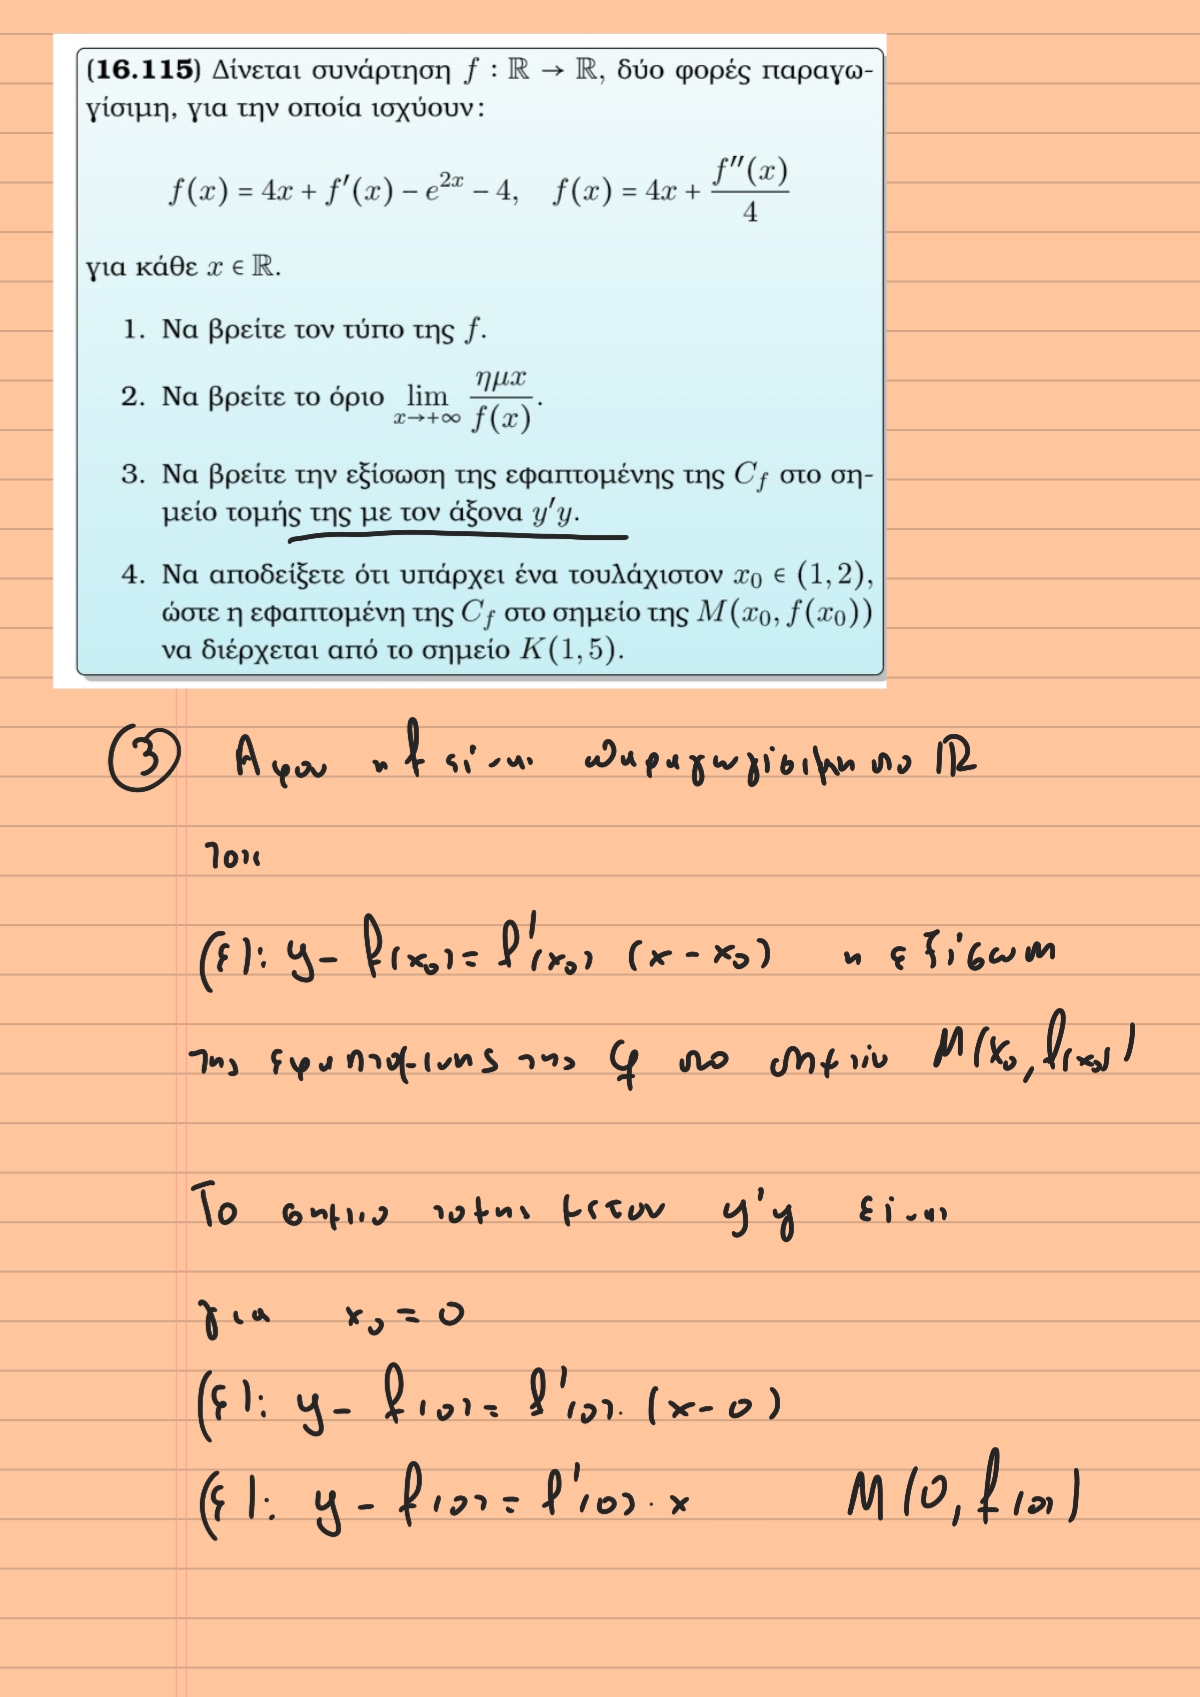 (16.115) Δίνεται συνάρτηση f : ℝ → ℝ, δύο φορές παραγω-
γίσιμη, για την οποία ισχύουν:
f(x) = 4x + f′(x) − e^{2x} − 4, f(x) = 4x + f″(x)/4
για κάθε x ∈ ℝ.
1. Να βρείτε τον τύπο της f.
2. Να βρείτε το όριο lim_{x→+∞} ημx/f(x).
3. Να βρείτε την εξίσωση της εφαπτομένης της C_f στο ση-
μείο τομής της με τον άξονα y′y.
4. Να αποδείξετε ότι υπάρχει ένα τουλάχιστον x₀ ∈ (1, 2),
ώστε η εφαπτομένη της C_f στο σημείο της M(x₀, f(x₀))
να διέρχεται από το σημείο K(1, 5).
③ Αφου η f είναι παραγωγίσιμη στο ℝ
τοτε
(ε): y − f(x₀) = f′(x₀) (x − x₀) η εξίσωση
της εφαπτομενης της C_f στο σημείο M(x₀, f(x₀))
Το σημειο τομης με τον y′y είναι
για x₀ = 0
(ε): y − f(0) = f′(0) · (x − 0)
(ε): y − f(0) = f′(0) · x M(0, f(0))